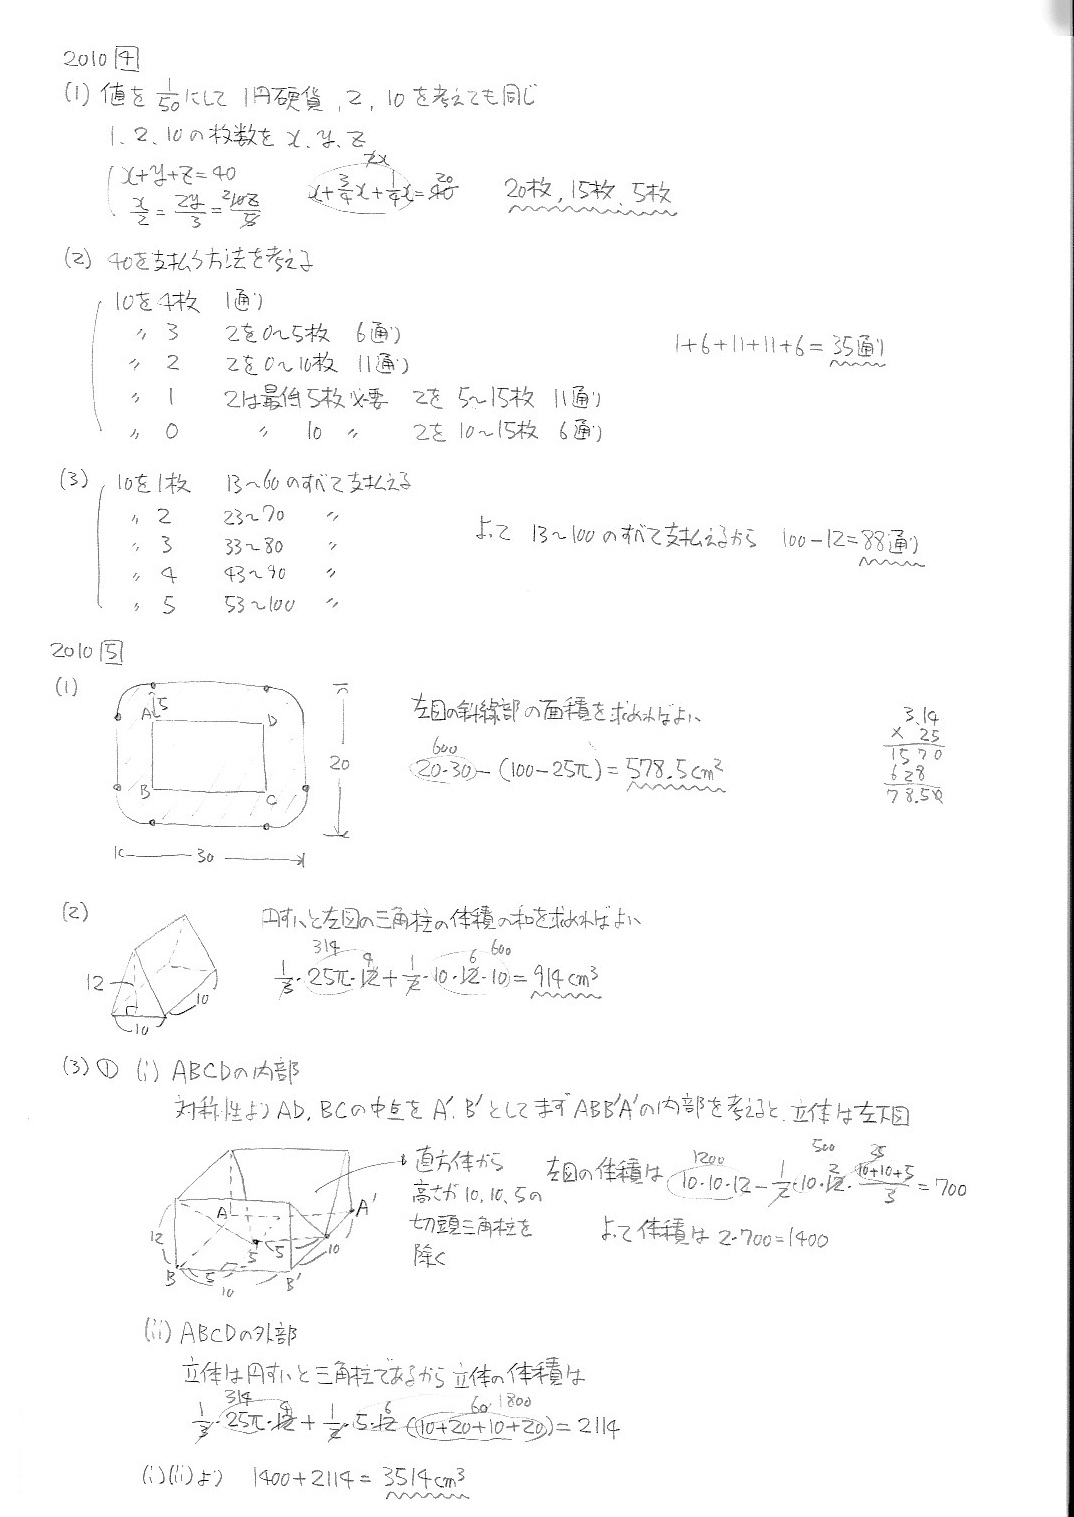 2010 4
(1) 値を 1/50 にして 1円硬貨, 2, 10 を考えても同じ
1, 2, 10の枚数を x, y, z
x+y+z=40
x/2 = 2y/3 = 10z/5
x+3/4x+1/4x=40
2x
20
20枚, 15枚, 5枚
(2) 40を支払う方法を考える
10を4枚 1通り
〃 3 2を0~5枚 6通り
〃 2 2を0~10枚 11通り
〃 1 2は最低5枚必要 2を5~15枚 11通り
〃 0 〃 10 〃 2を10~15枚 6通り
1+6+11+11+6=35通り
(3) 10を1枚 13~60のすべて支払える
〃 2 23~70 〃
〃 3 33~80 〃
〃 4 43~90 〃
〃 5 53~100 〃
よって 13~100のすべて支払えるから 100-12=88通り
2010 5
(1)
A 5 D
B C
20
30
左図の斜線部の面積を求めればよい
600
20・30-(100-25π)=578.5cm²
3.14
× 25
1570
628
78.50
(2) 円すいと左図の三角柱の体積の和を求めればよい
12
10
10
314 4 6 600
1/3・25π・12+1/2・10・12・10=914cm³
(3)① (i) ABCDの内部
対称性より AD, BCの中点を A', B'として まず ABB'A'の内部を考えると, 立体は左下図
12
A A'
B B'
5 5 5 10
10
直方体から
高さが 10, 10, 5の
切頭三角柱を
除く
1200 500 2 25
左図の体積は 10・10・12-1/2・10・12・(10+10+5)/3=700
よって体積は 2・700=1400
(ii) ABCDの外部
立体は円すいと三角柱であるから 立体の体積は
314 4 6 60 1800
1/3・25π・12+1/2・5・12・(10+20+10+20)=2114
(i)(ii)より 1400+2114=3514cm³